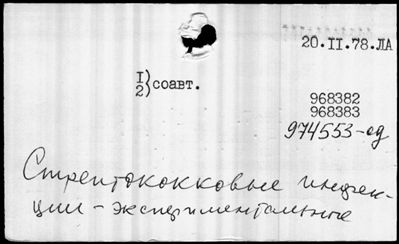 20.II.78.ЛА
1)
2) соавт.
968382
968383
974553-ед
Стрептококковые инфек-
ции - экспериментальные